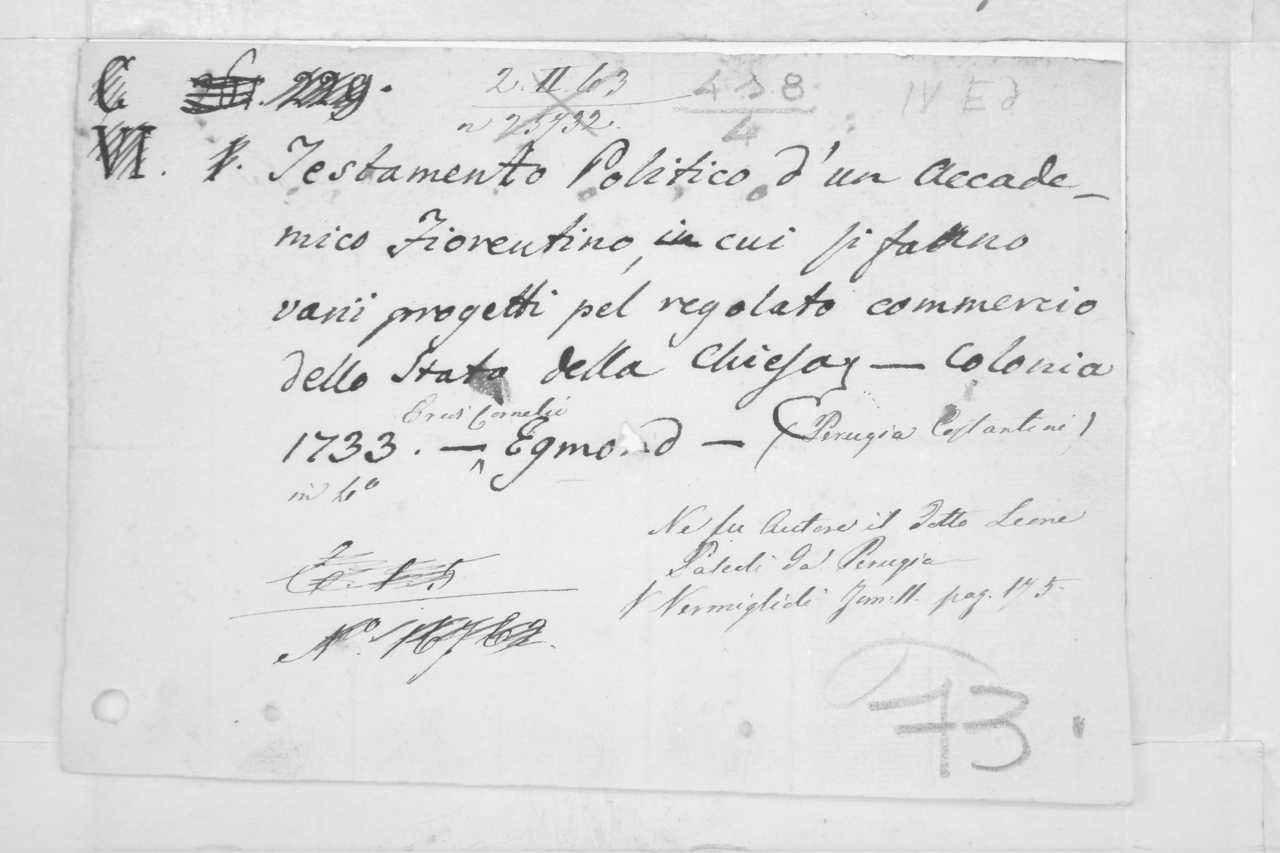 C 229.
2. II. 63
438
4
IV E d
n 23732.
VI. P. Testamento Politico d'un Accade-
mico Fiorentino, in cui si fanno
varii progetti pel regolato commercio
dello Stato della Chiesa, — Colonia
Eredi Cornelio
1733. — Egmond — (Perugia Costantini)
in 4°
Ne fu Autore il Dotto Leone
Pascoli da Perugia
V Vermiglioli Tom. II. pag. 175.
N° 16762.
73